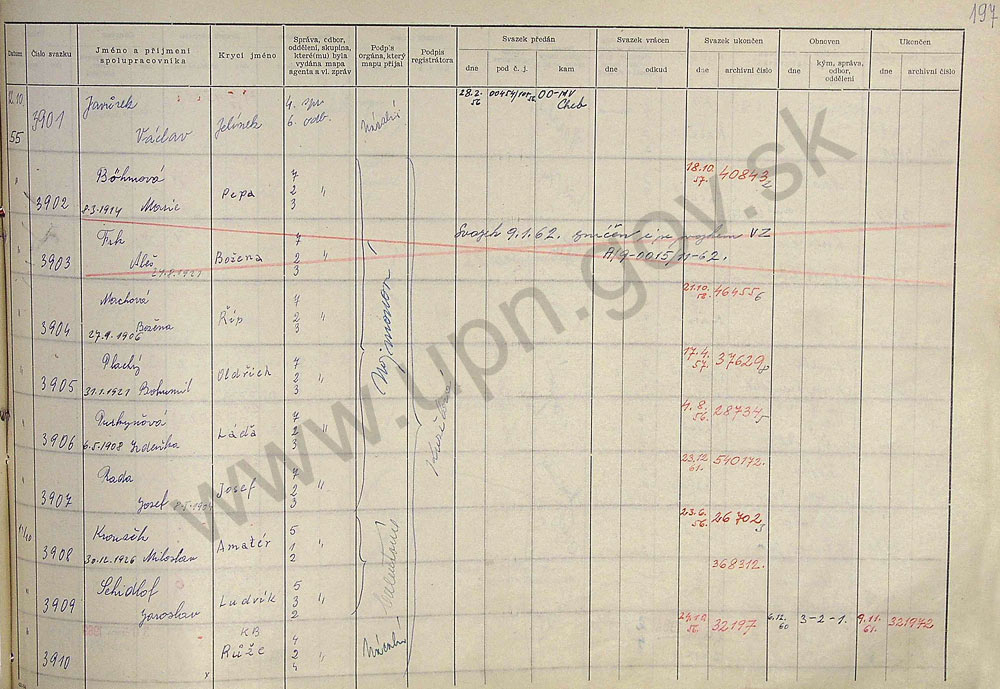 197
Datum
Číslo svazku
Jméno a příjmení
spolupracovníka
Krycí jméno
Správa, odbor,
oddělení, skupina,
které(mu) byla
vydána mapa
agenta a vl. zpráv
Podpis
orgána, který
mapu přijal
Podpis
registrátora
Svazek předán
dne
pod č. j.
kam
Svazek vrácen
dne
odkud
Svazek ukončen
dne
archivní číslo
Obnoven
dne
kým, správa,
odbor,
oddělení
Ukončen
dne
archivní číslo
12.10.
55
3901
Javůrek
Václav
Jelínek
4. spr.
6. odb.
28.2.
56
OO-MV
Cheb
3902
Böhmová
8.3.1914 Marie
Pepa
7
2 "
3
18.10.
57.
40843
3903
Frk
Aleš
Božena
7
2 "
3
Svazek 9.1.62.
VZ
A/9-0015/11-62.
3904
Machová
27.9.1906 Božena
Říp
7
2 "
3
21.10.
464556
3905
Plachý
31.1.1921 Bohumil
Oldřich
7
2 "
3
17.4.
57.
37629
3906
Purkyňová
6.5.1908 Zdenka
Láďa
7
2 "
3
4.8.
56.
28734
3907
Rada
Josef
Josef
7
2 "
3
23.12.
61.
540172.
3908
30.12.1926 Miloslav
Amatér
5
1 "
2
23.6.
56.
26702
3909
Schidlof
Jaroslav
Ludvík
5
3 "
2
368312.
3910
KB
Růže
4
2 "
4
56.
32197
6.12.
60
3-2-1.
9.11.
61.
321972
www.upn.gov.sk